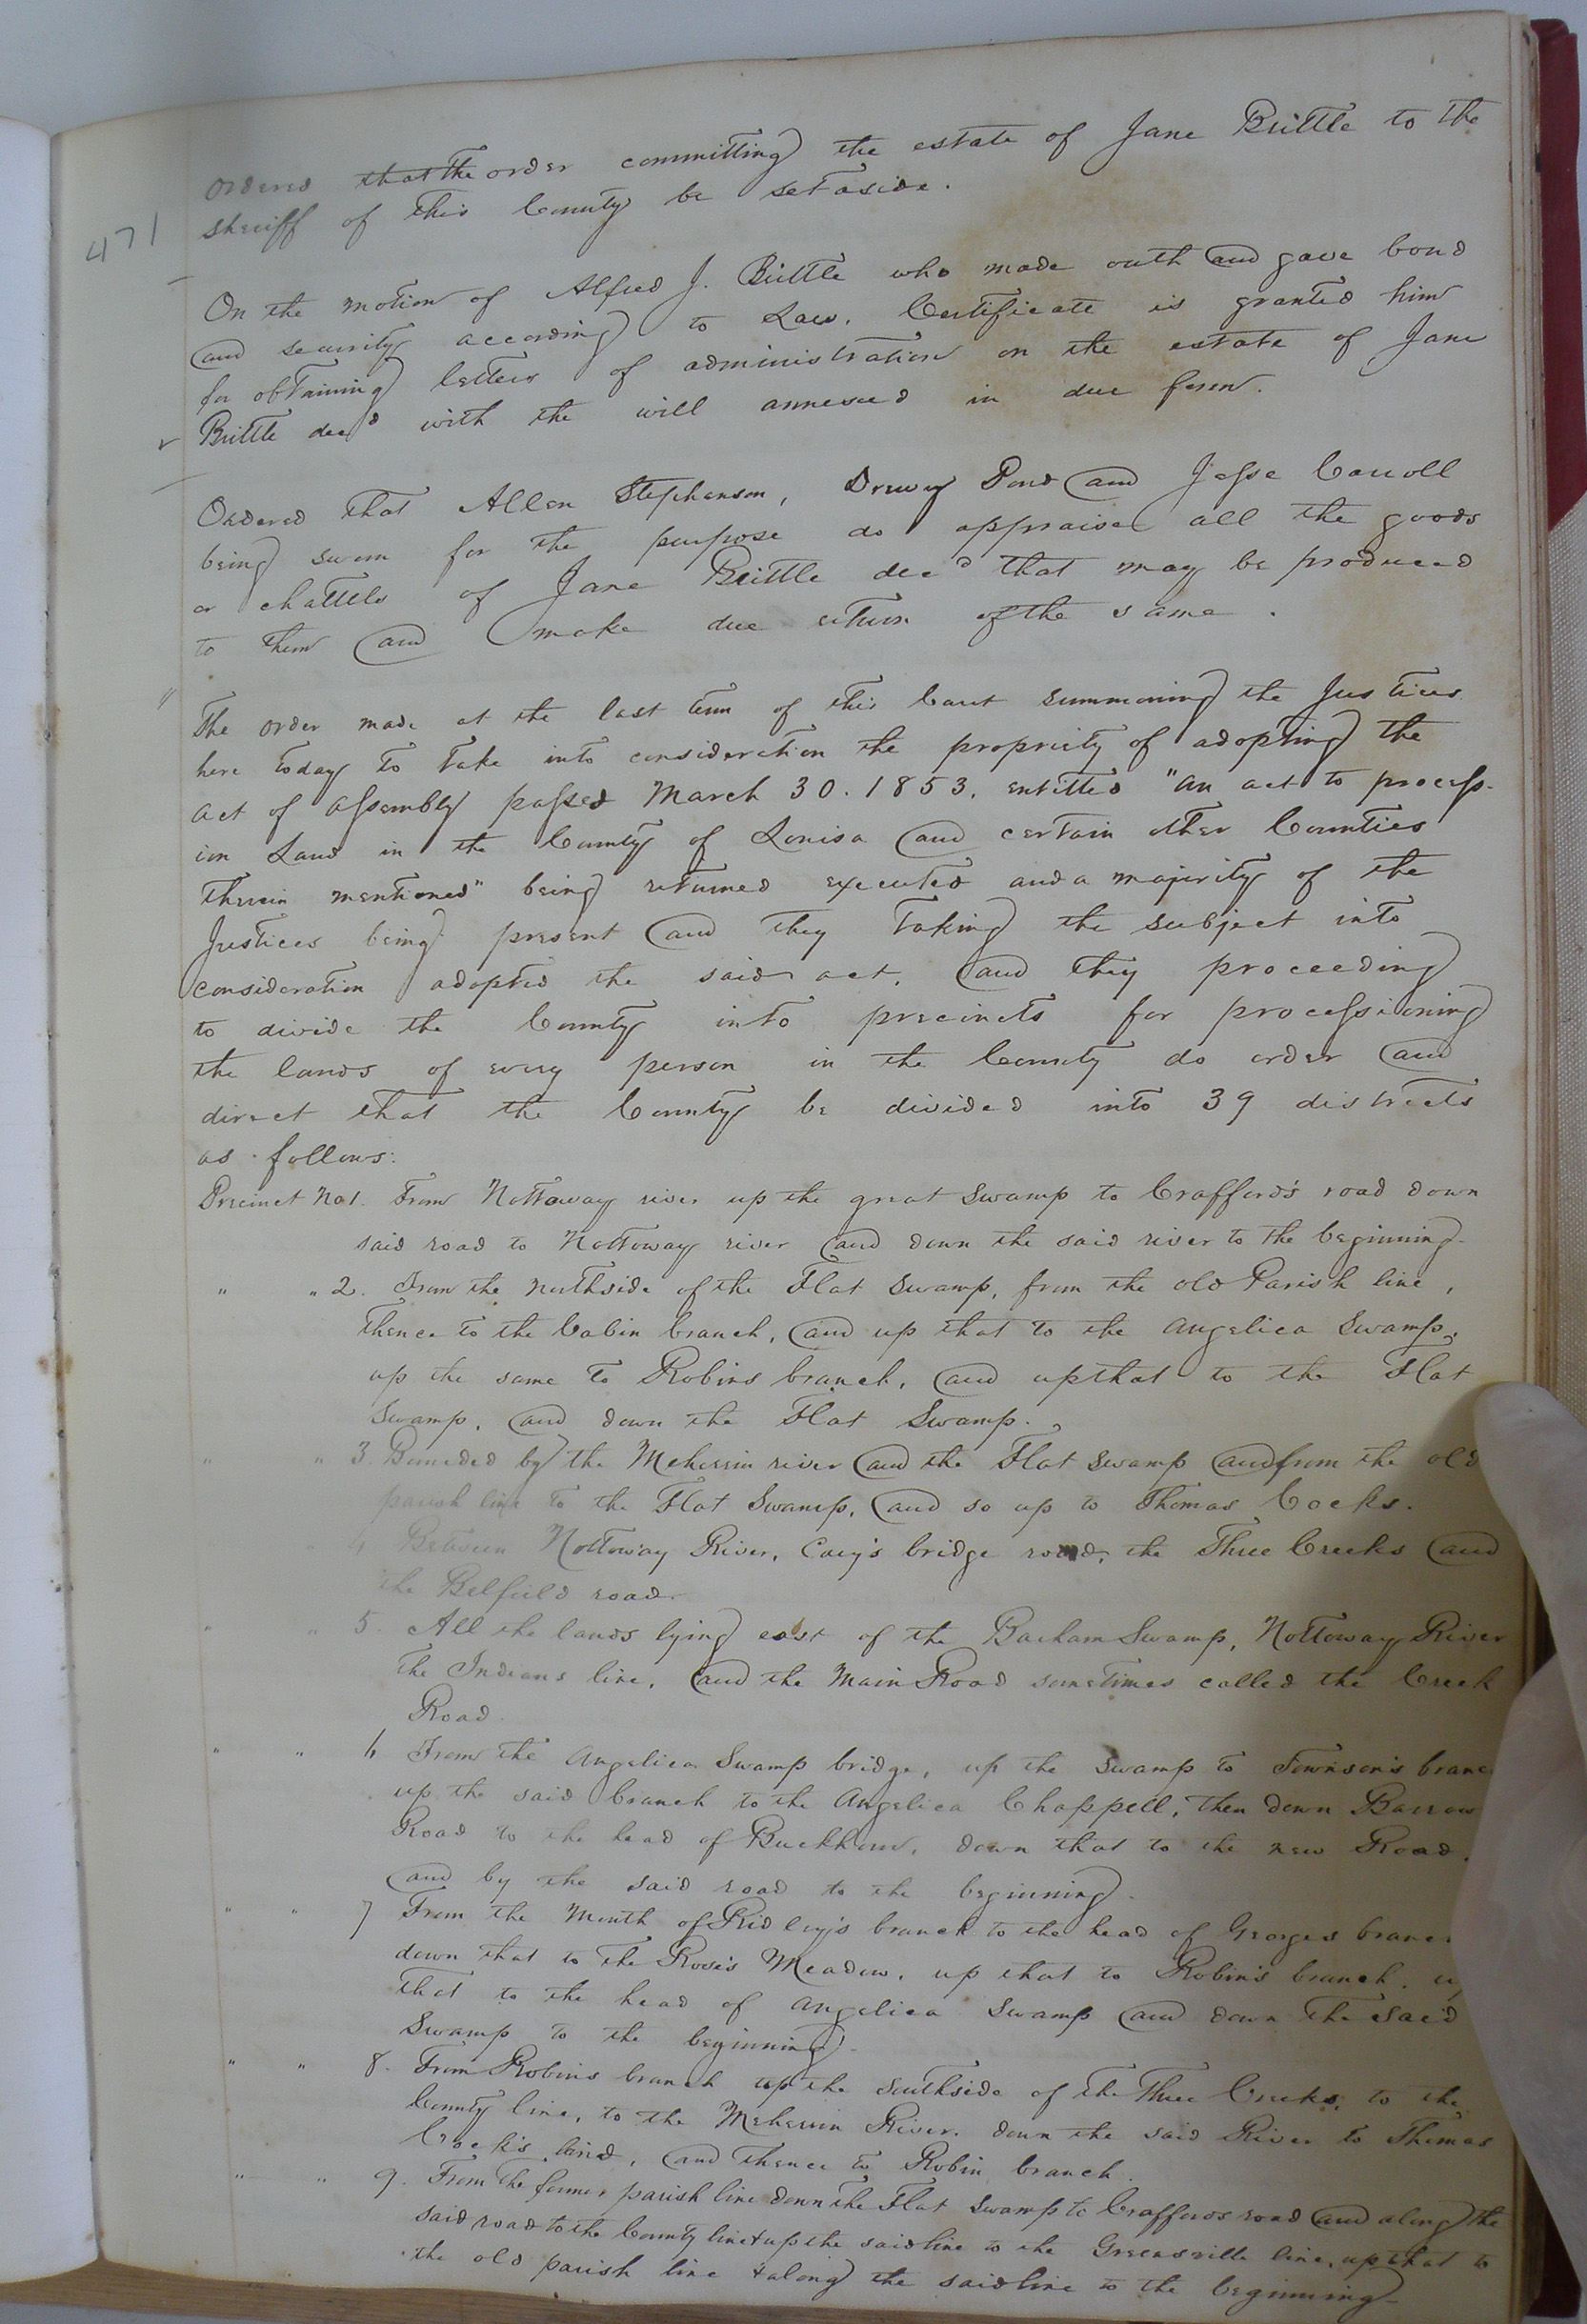 Ordered that the order committing the estate of Jane Brittle to the
sheriff of this County be set aside.
471
On the motion of Alfred J. Brittle who made outh and gave bond
and security according to Law. Certificate is granted him
for obtaining letters of administration on the estate of Jane
Brittle decd with the will annexed in due form.
Ordered that Allen Stephenson, Drewry Pond and Jesse Carroll
being sworn for the purpose do appraise all the goods
or chattels of Jane Brittle decd that may be produced
to them and make due return of the same.
The order made at the last term of this Court summoning the Justices
here today to take into consideration the propriety of adopting the
act of assembly passed March 30. 1853. entitled "an act to process-
ion Land in the County of Louisa and certain other Counties
therein mentioned" being returned executed and a majority of the
Justices being present and they taking the subject into
consideration adopted the said act. and they proceeding
to divide the County into precincts for processioning
the lands of every person in the County do order and
direct that the County be divided into 39 districts
as follows:
Precinct No 1. From Nottoway river up the great Swamp to Crafford's road down
said road to Nottoway river and down the said river to the beginning.
" " 2. From the northside of the Flat Swamp, from the old Parish line,
thence to the Cabin branch, and up that to the Angelica Swamp,
up the same to Robins branch, and up that to the Flat
Swamp, and down the Flat Swamp.
" " 3. Bounded by the Meherrin river and the Flat Swamp and from the old
parish line to the Flat Swamp, and so up to Thomas Cocks.
" 4 Between Nottoway River, Cary's bridge road, the Three Creeks and
the Belfield road.
" " 5. All the lands lying east of the Barham Swamp, Nottoway River
the Indians line, and the Main Road sometimes called the Creek
Road
" " 6 From the Angelica Swamp bridge, up the Swamp to Townson's branc
up the said branch to the Angelica Chappell, then down Barrow
Road to the head of Buckhorn, down that to the new Road,
and by the said road to the beginning.
" " 7 From the Mouth of Ridley's branch to the head of Georges branc
down that to the Rose's Meadow, up that to Robin's branch, u
that to the head of Angelica Swamp and down the said
Swamp to the beginning.
" " 8. From Robins branch up the Southside of the Three Creeks, to the
County line, to the Meherrin River. down the said River to Thomas
Cock's land, and thence to Robin branch.
" " 9. From the former parish line down the Flat Swamp to Craffords road and along the
said road to the County line & up the said line to the Greensville line, up that to
the old parish line & along the said line to the beginning-